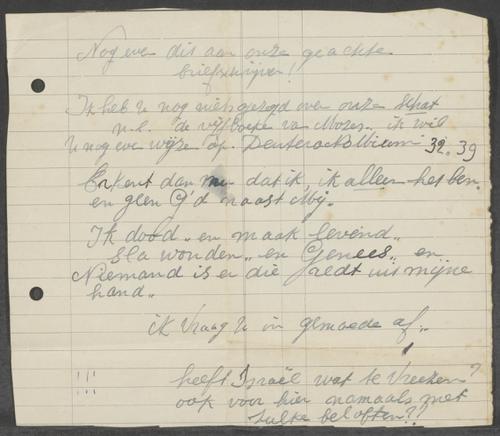 Nog even dit aan onze geachte
briefschrijver!
Ik heb U nog niets gezegd over onze schat
n.l. de vijf boeken van Mozes.. ik wil
U nog even wijze op. Deuteronomium 32.39
Erkent dan nu dat ik, ik alleen het ben.
en geen G'd naast Mij.
Ik dood.. en maak levend..
sla wonden.. en Genees.. en
Niemand is er die redt uit mijne
hand..
ik Vraag U in gemoede af..
!!! heeft Israël wat te Vreezen?
!!! ook voor hier namaals met
zulke beloften??